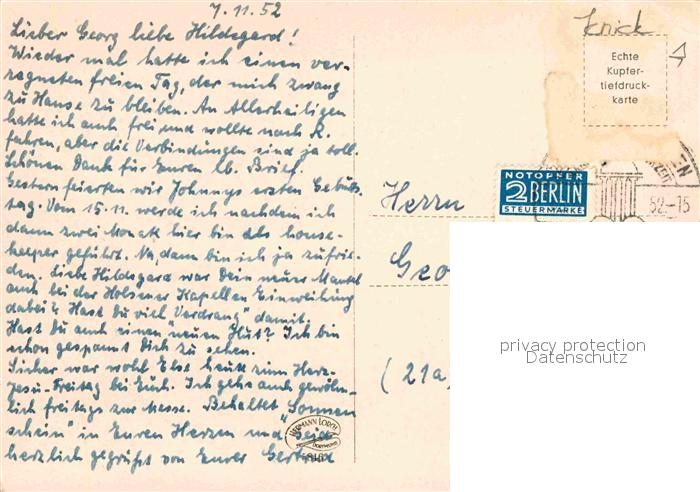 7.11.52
Lieber Georg liebe Hildegard!
Wieder mal hatte ich einen ver-
regneten freien Tag, der mich zwang
zu Hause zu bleiben. An Allerheiligen
hatte ich auch frei und wollte nach R.
fahren, aber die Verbindungen sind ja toll.
Schönen Dank für Euren lb. Brief.
Gestern feierten wir Johnnys ersten Geburts-
tag. Vom 15.11. werde ich nachdem ich
dann zwei Monate hier bin als house-
helper geführt. Na, dann bin ich ja zufrie-
den. Liebe Hildegard war Dein neuer Mantel
auch bei der Holsener Kapellen Einweihung
dabei? Hast Du viel "Verdrang" damit.
Hast Du auch einen "neuen Hut"? Ich bin
schon gespannt Dich zu sehen.
Sicher war wohl Else heute zum Herz-
Jesu-Freitag bei Euch. Ich gehe auch gewöhn-
lich freitags zur Messe. Behaltet "Sonnen
schein" in Euren Herzen und seid
herzlich gegrüßt von Eurer Gertrud
HERMANN LORCH
DORTMUND
Knick
Echte
Kupfer-
tiefdruck-
karte
NOTOPFER
2 BERLIN
STEUERMARKE
52.-15
Herrn
Geo
(21a)
privacy protection
Datenschutz